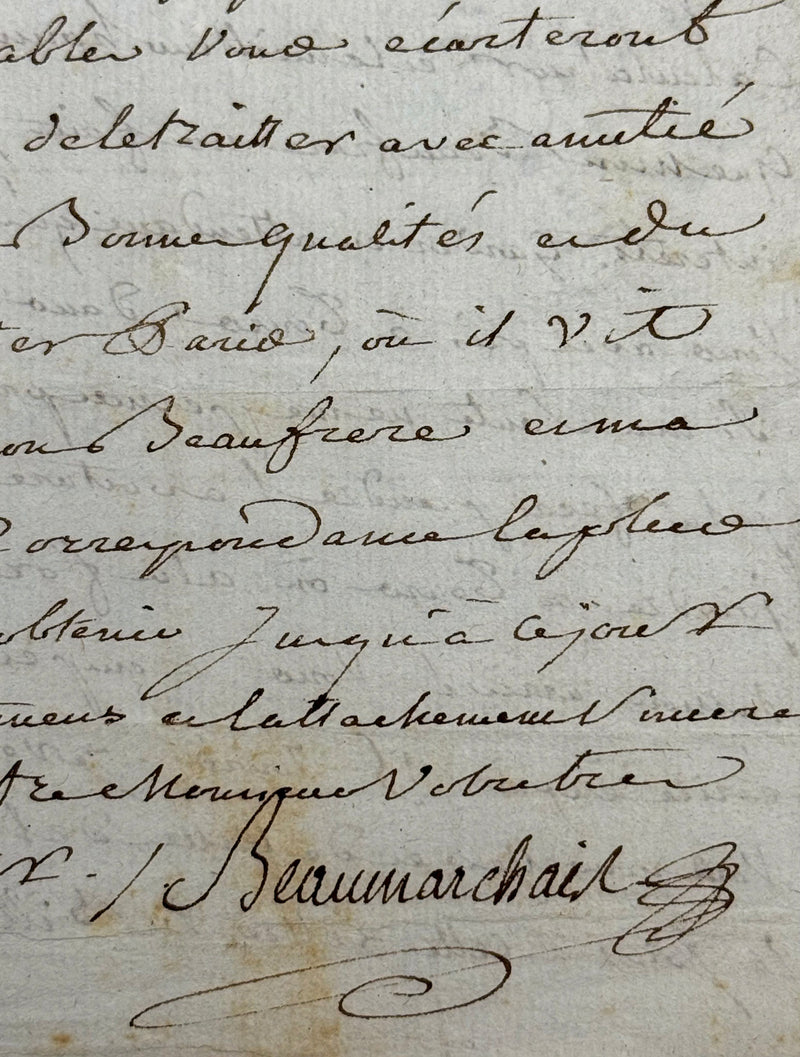 ables vous écarteront
de le traitter avec amitié
Bonnes qualités et du
ter Paris, où il vit
on Beaufrere et ma
Correspondance la plus
obtenir jusqu'à ce jour
mens et lattachement sincere
tre Monsieur Votre tres
r. / Beaumarchais